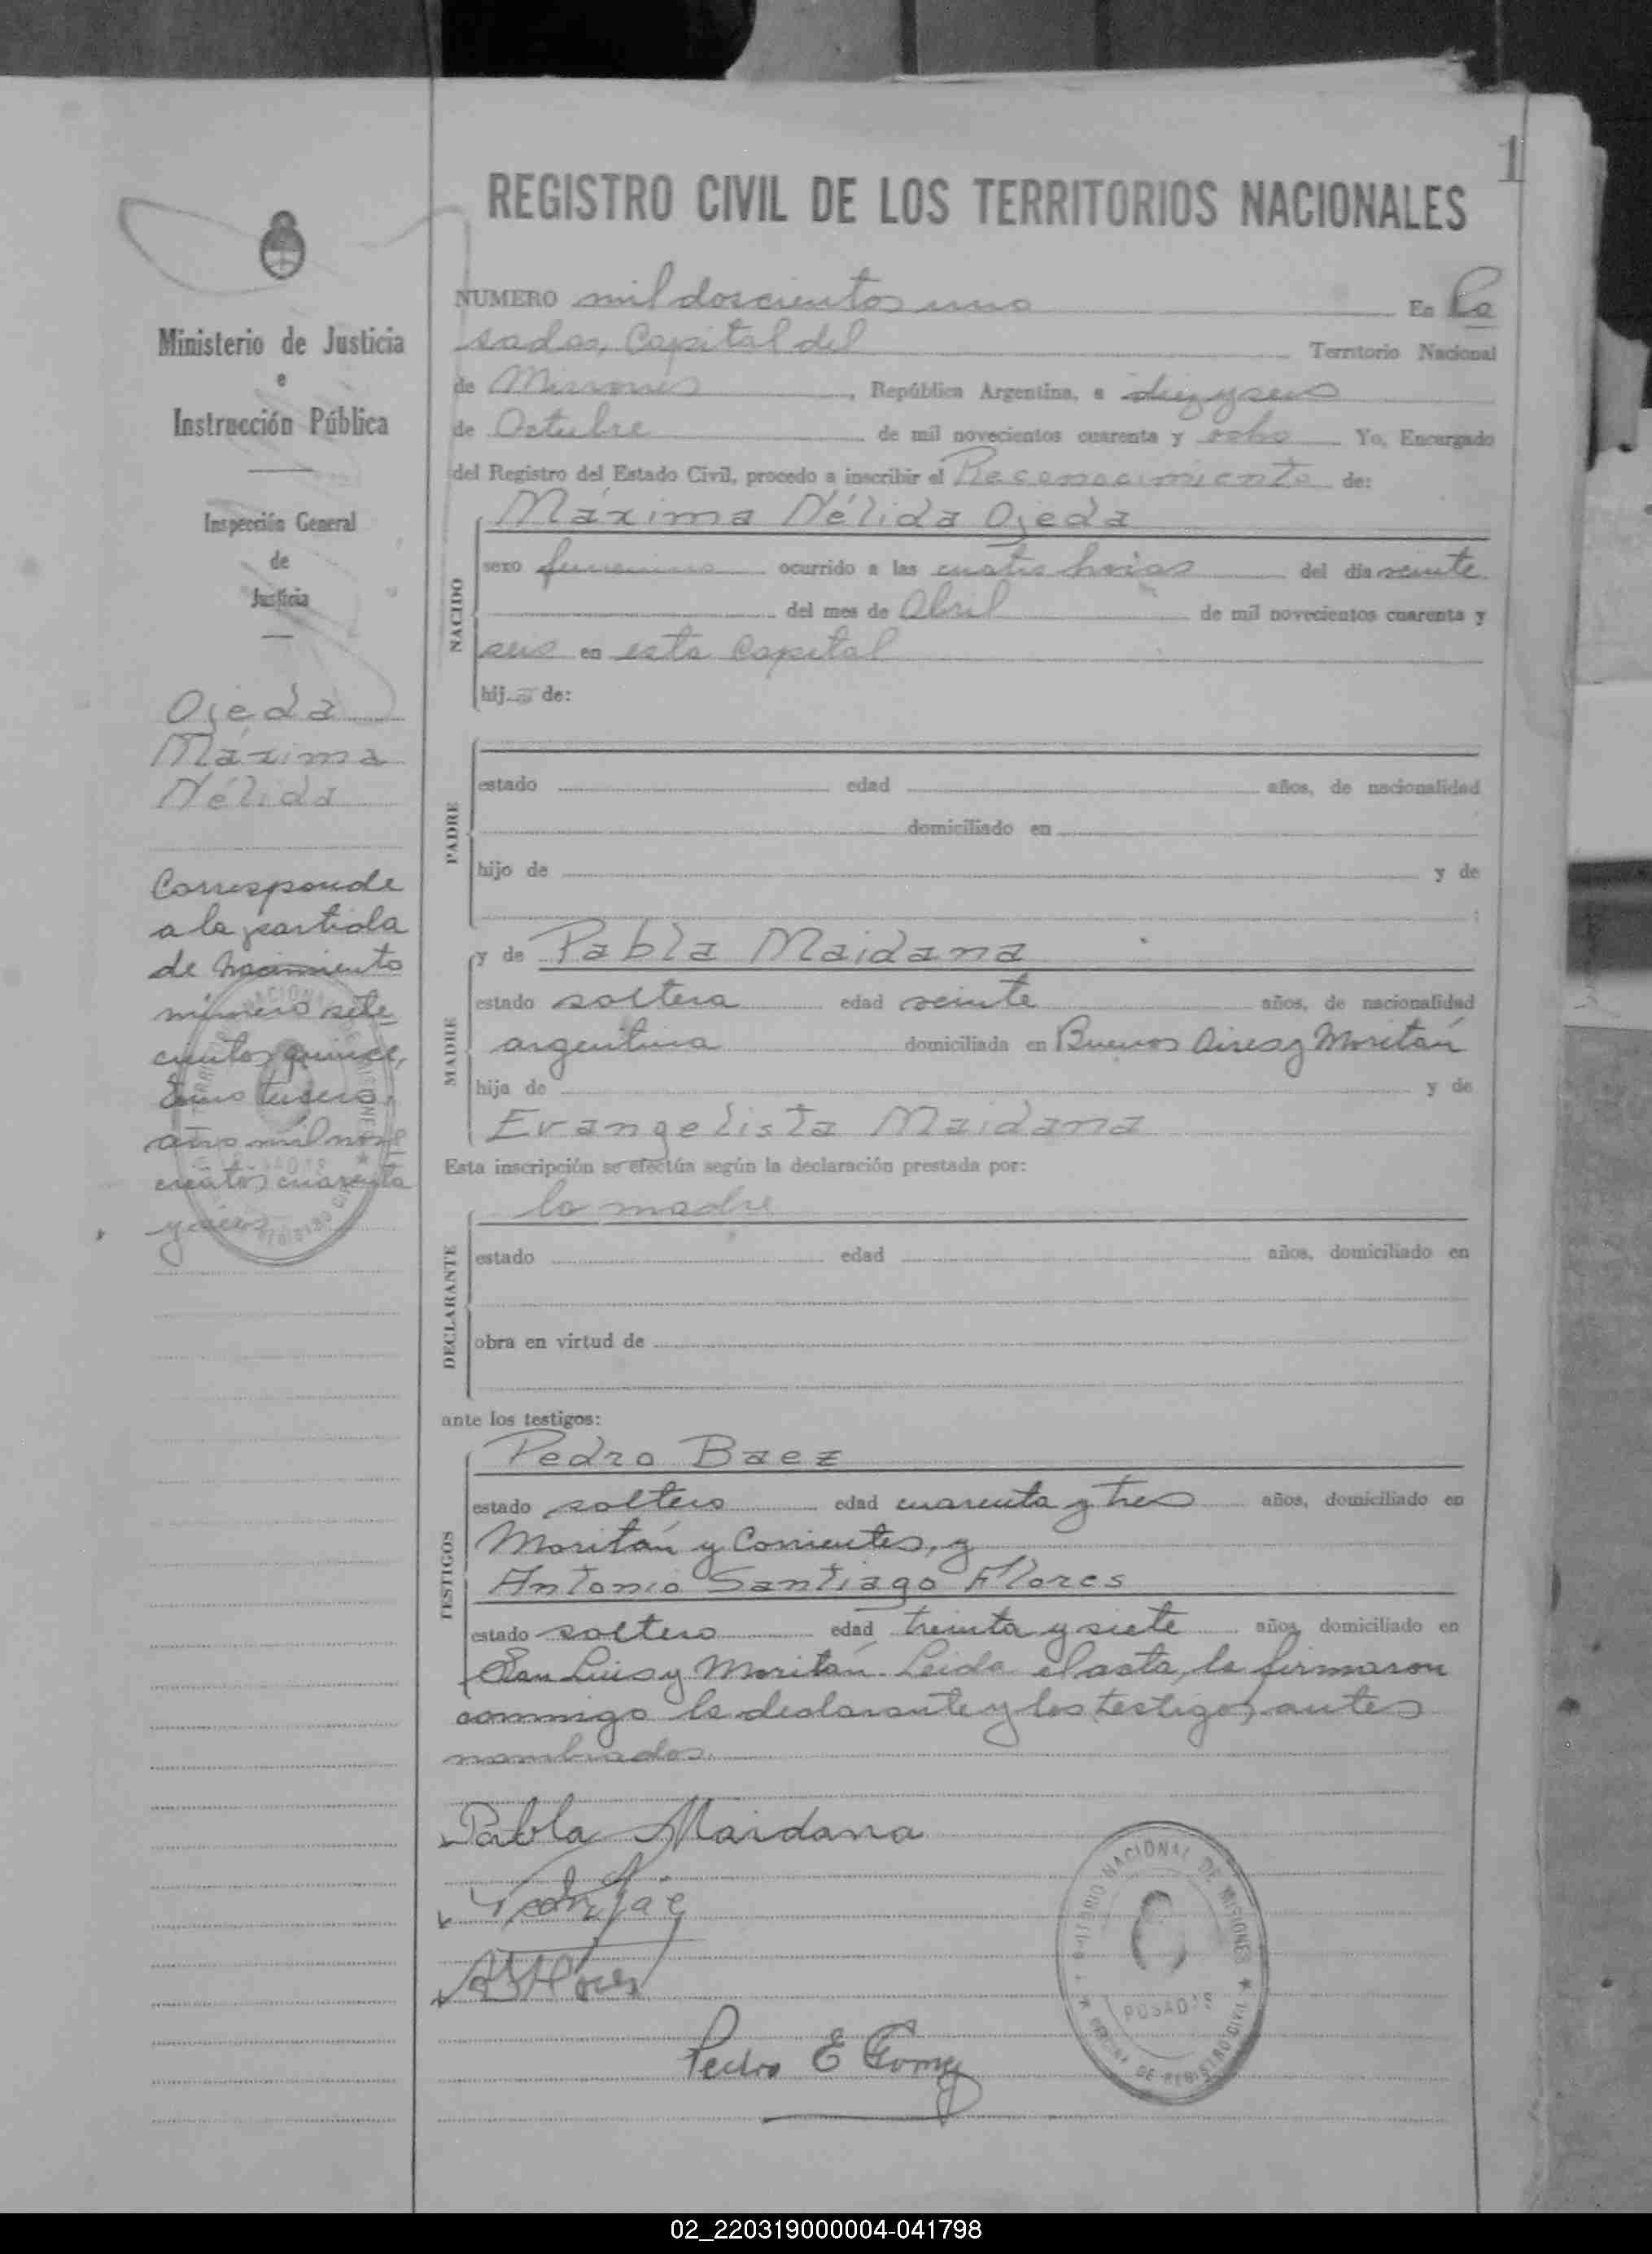 1
REGISTRO CIVIL DE LOS TERRITORIOS NACIONALES
Ministerio de Justicia
e
Instrucción Pública
Inspección General
de
Justicia
Ojeda
Máxima
Nélida
Corresponde
a la partida
de nacimiento
número sete
cientos quince,
tomo tercero,
año mil nove
cientos cuarenta
y seis
NUMERO mil doscientos uno En Po
sadas, Capital del Territorio Nacional
de Misiones, República Argentina, a diez y seis
de Octubre de mil novecientos cuarenta y ocho Yo, Encargado
del Registro del Estado Civil, procedo a inscribir el Reconocimiento de:
NACIDO
Máxima Nélida Ojeda
sexo femenino ocurrido a las cuatro horas del día veinte
del mes de Abril de mil novecientos cuarenta y
seis en esta Capital
hija de:
PADRE
estado edad años, de nacionalidad
domiciliado en
hijo de y de
;
MADRE
y de Pabla Maidana
estado soltera edad veinte años, de nacionalidad
argentina domiciliada en Buenos Aires y Moritán
hija de y de
Evangelista Maidana
Esta inscripción se efectúa según la declaración prestada por:
DECLARANTE
la madre
estado edad años, domiciliado en
obra en virtud de
ante los testigos:
TESTIGOS
Pedro Baez
estado soltero edad cuarenta y tres años, domiciliado en
Moritán y Corrientes, y
Antonio Santiago Flores
estado soltero edad treinta y siete años, domiciliado en
San Luis y Moritán. Leida el acta, la firmaron
conmigo la declarante y los testigos antes
nombrados.
Pabla Maidana
Pedro E Gomez
TERRITORIO NACIONAL DE MISIONES
POSADAS
OFICINA DE REGISTRO CIVIL
02_220319000004-041798